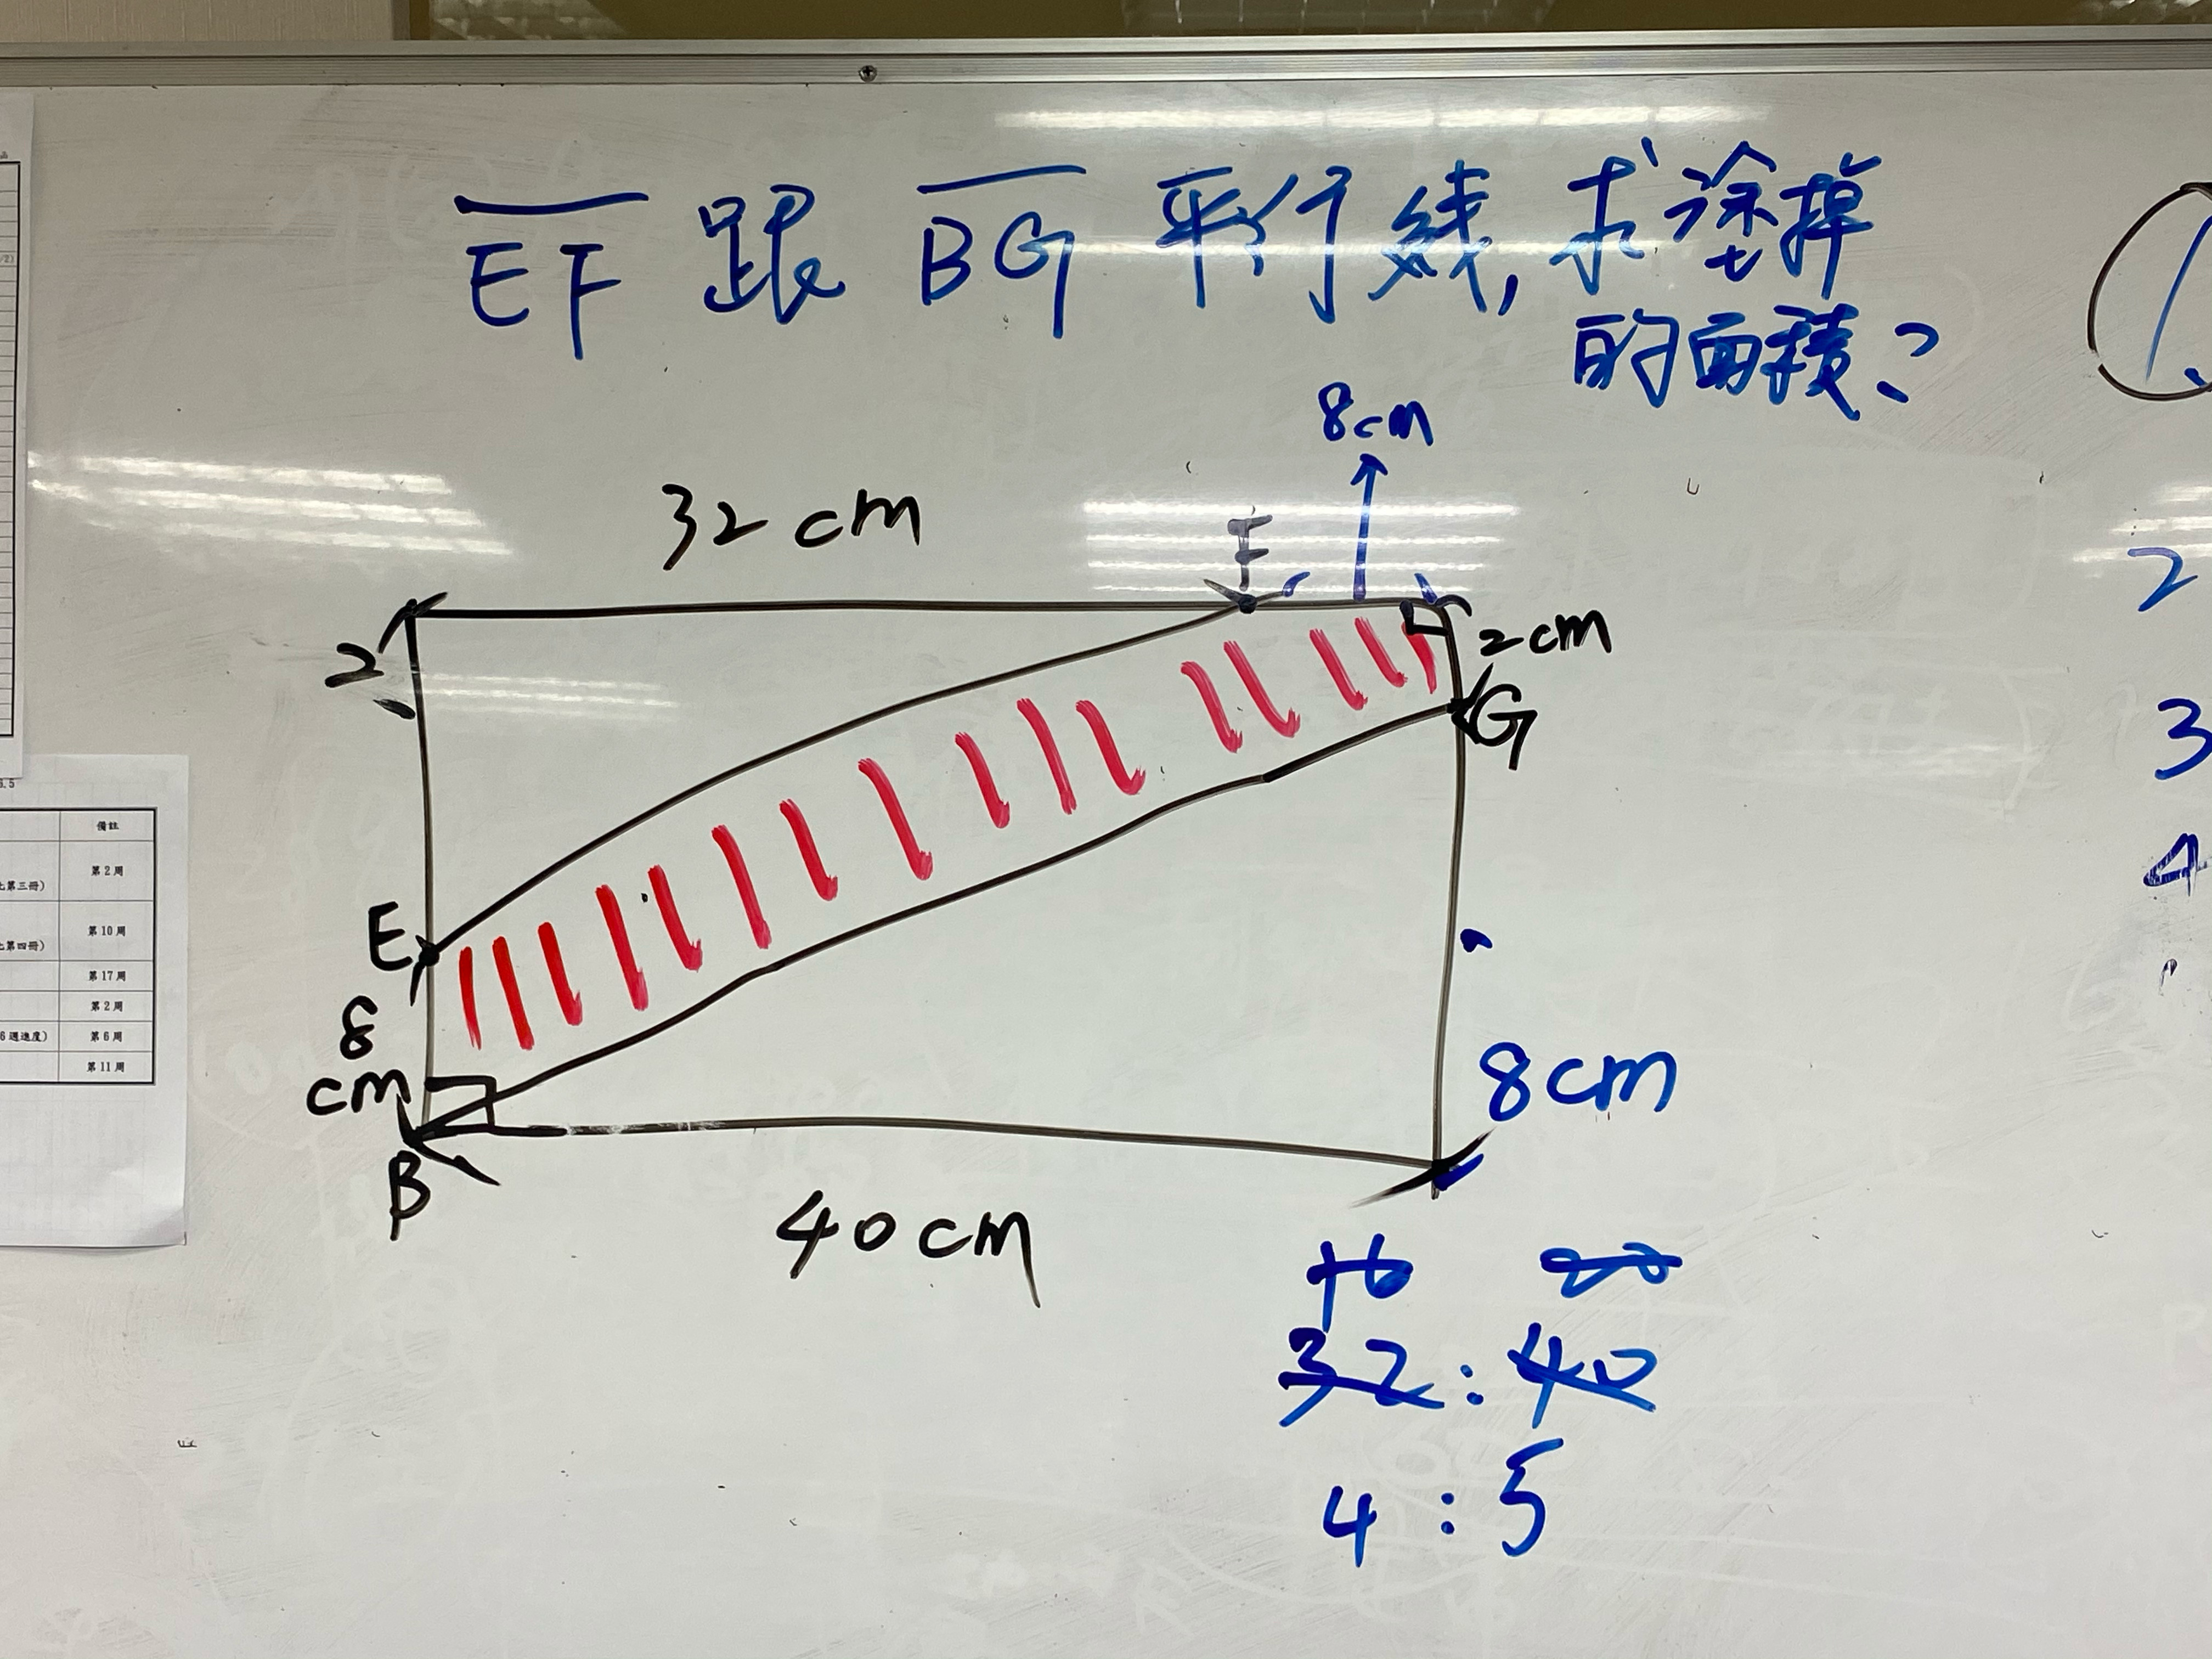 EF 跟 BG 平行線, 求塗掉
的面積?
8cm
32 cm
F
2
2cm
G
E
8
cm
B
8cm
40 cm
16 20
32 : 40
4 : 5
1.
2
3
4
備註
第三冊) 第 2 周
第四冊) 第 10 周
第 17 周
第 2 周
6 週進度) 第 6 周
第 11 周